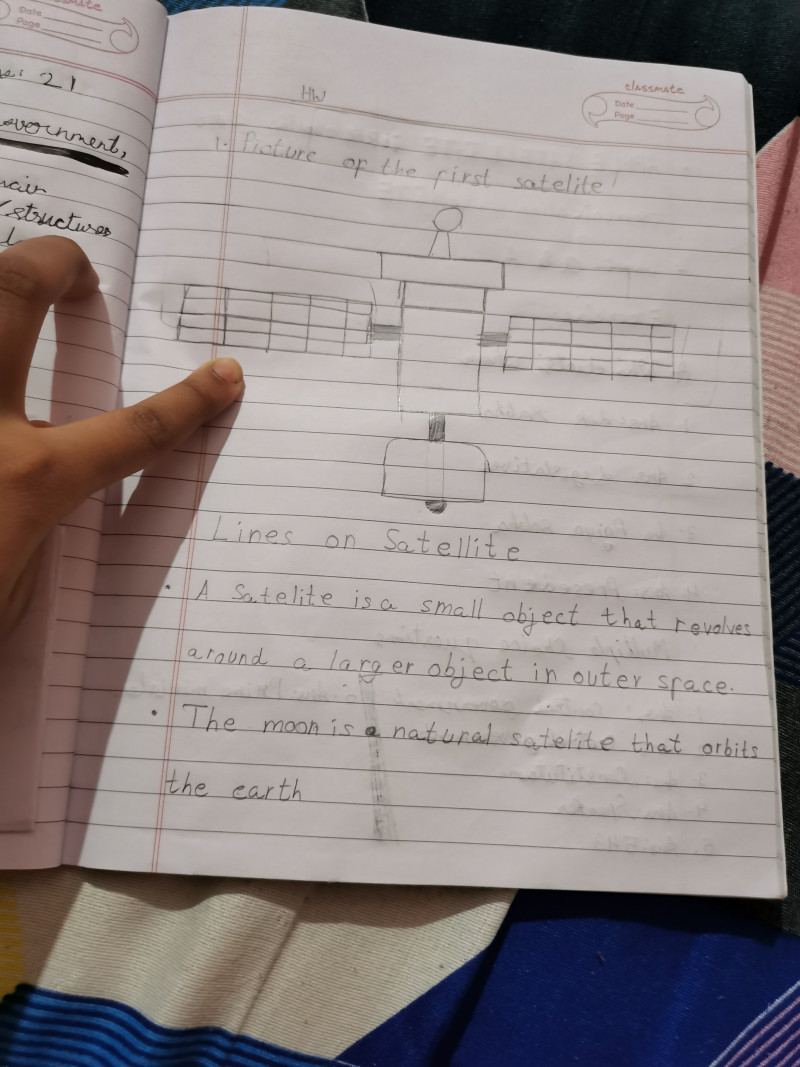 classmate
Date
Page
21
overnment,
structures
HW
classmate
Date
Page
1. Picture of the first satelite
Lines on Satellite
• A Satelite is a small object that revolves
around a larger object in outer space.
• The moon is a natural satelite that orbits
the earth